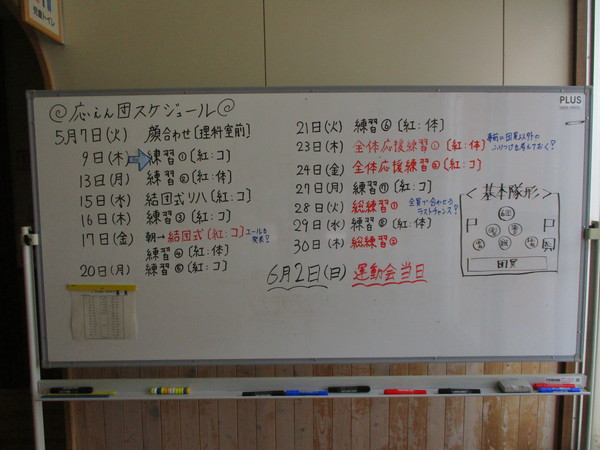 多目的トイレ
PLUS
◎応えん団スケジュール◎
5月7日(火) 顔合わせ[理科室前]
9日(木) 練習①〔紅:コ〕
13日(月) 練習②〔紅:体〕
15日(水) 結団式リハ〔紅:コ〕
16日(木) 練習③〔紅:コ〕
17日(金) 朝→結団式〔紅:コ〕 エールを発表?
練習④〔紅:体〕
20日(月) 練習⑤〔紅:コ〕
21日(火) 練習⑥〔紅:体〕
23日(木) 全体応援練習①〔紅:体〕
事前に団員以外の
24日(金) 全体応援練習②〔紅:コ〕
27日(月) 練習⑦〔紅:コ〕
28日(火) 総練習① 全員で合わせるラストチャンス?
29日(水) 練習⑧〔紅:体〕
30日(木) 総練習②
6月2日(日) 運動会当日
<基本隊形>
団員